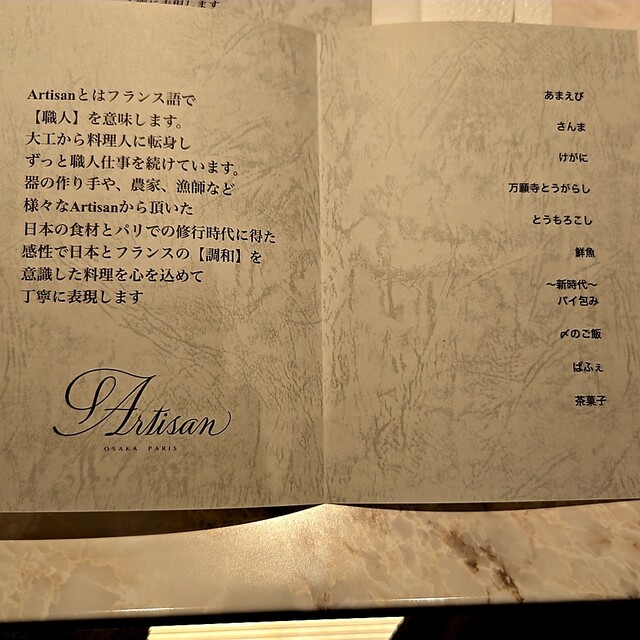 Artisanとはフランス語で
【職人】を意味します。
大工から料理人に転身し
ずっと職人仕事を続けています。
器の作り手や、農家、漁師など
様々なArtisanから頂いた
日本の食材とパリでの修行時代に得た
感性で日本とフランスの【調和】を
意識した料理を心を込めて
丁寧に表現します
Artisan
OSAKA PARIS
あまえび
さんま
けがに
万願寺とうがらし
とうもろこし
鮮魚
〜新時代〜
パイ包み
〆のご飯
ぱふぇ
茶菓子